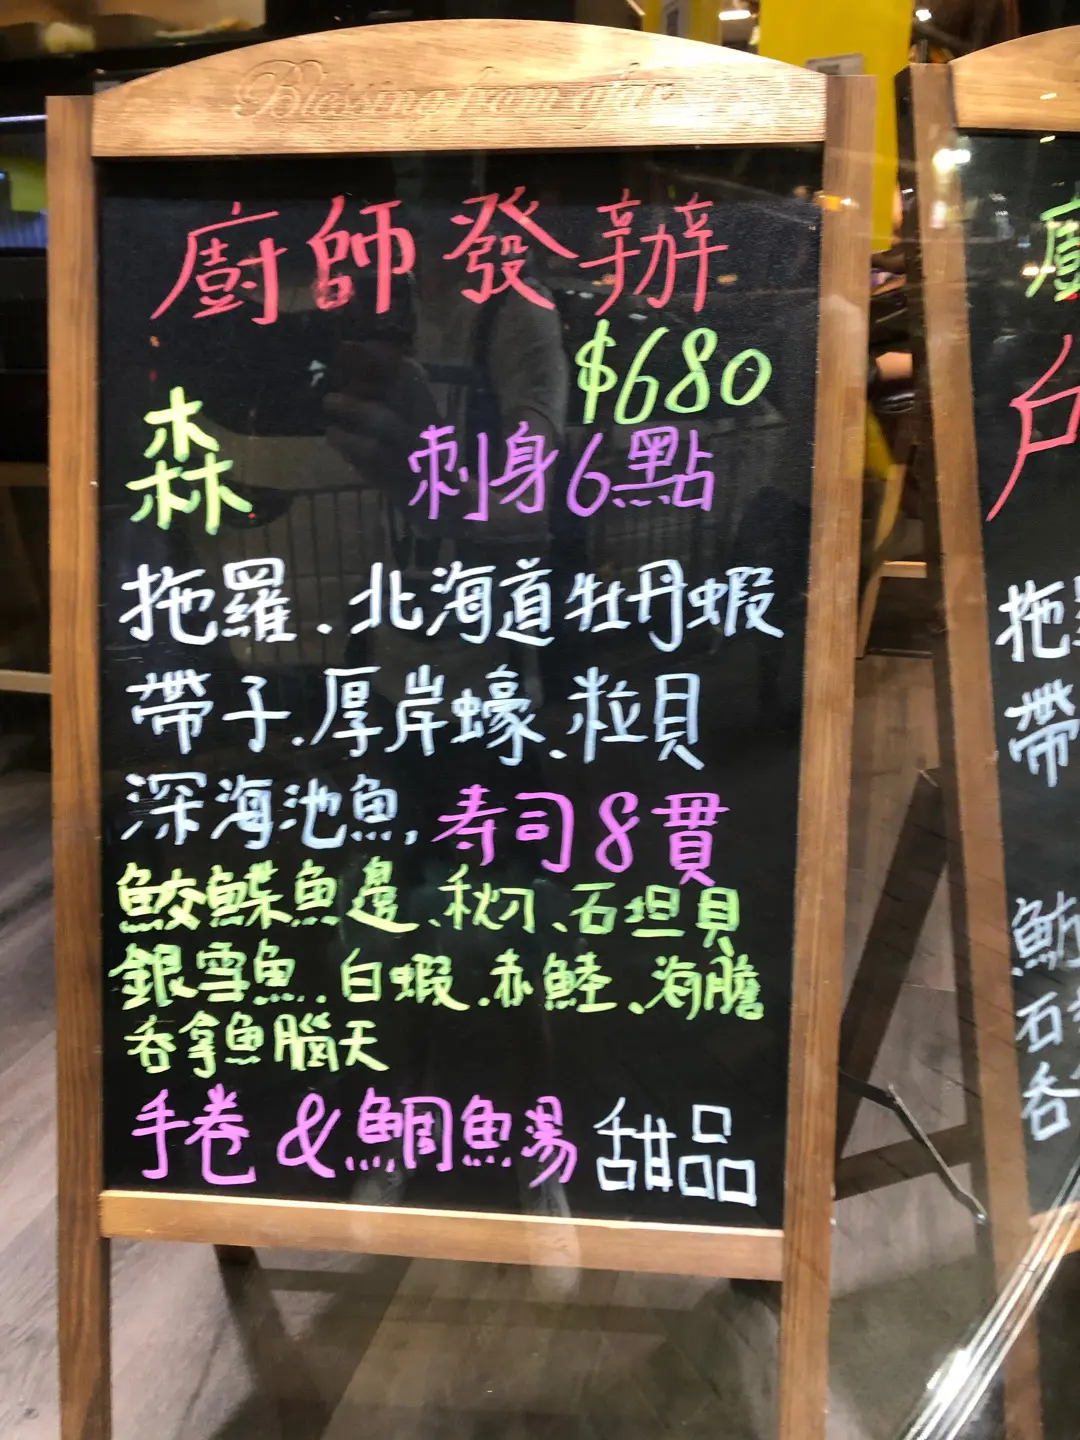 Blessing from afar
廚師發辦
$680
森 刺身6點
拖羅、北海道牡丹蝦
帶子、厚岸蠔、粒貝
深海池魚, 寿司8貫
鮫鰈魚邊、秋刀、石坦貝
銀雪魚、白蝦、赤鯥、海膽
吞拿魚腦天
手卷 & 鯛魚湯 甜品
廚
拖
帶
石
吞